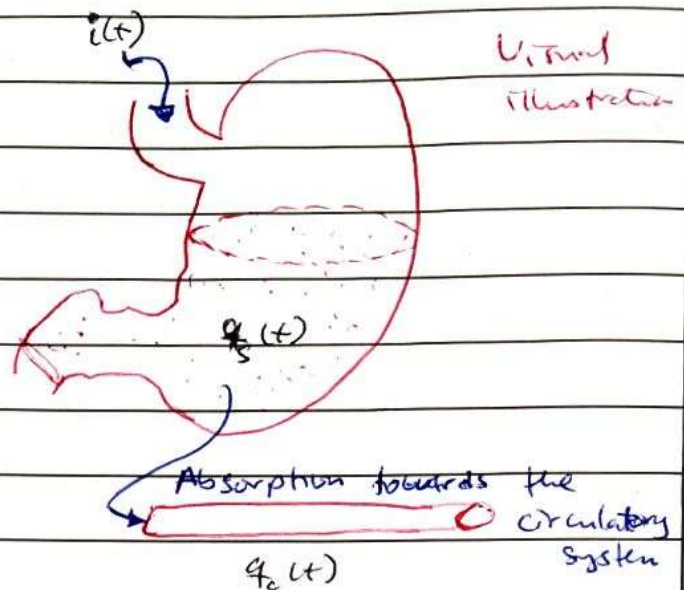 i(t)
Visual
illustration
q_s(t)
Absorption towards the
circulatory
system
q_c(t)